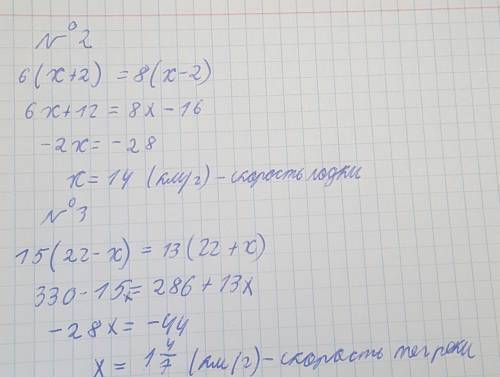 №2
6(x+2) = 8(x-2)
6x+12 = 8x-16
-2x = -28
x = 14 (км/г) - скорость лодки
№3
15(22-x) = 13(22+x)
330-15x = 286+13x
-28x = -44
x = 1 4/7 (км/г) - скорость теч реки